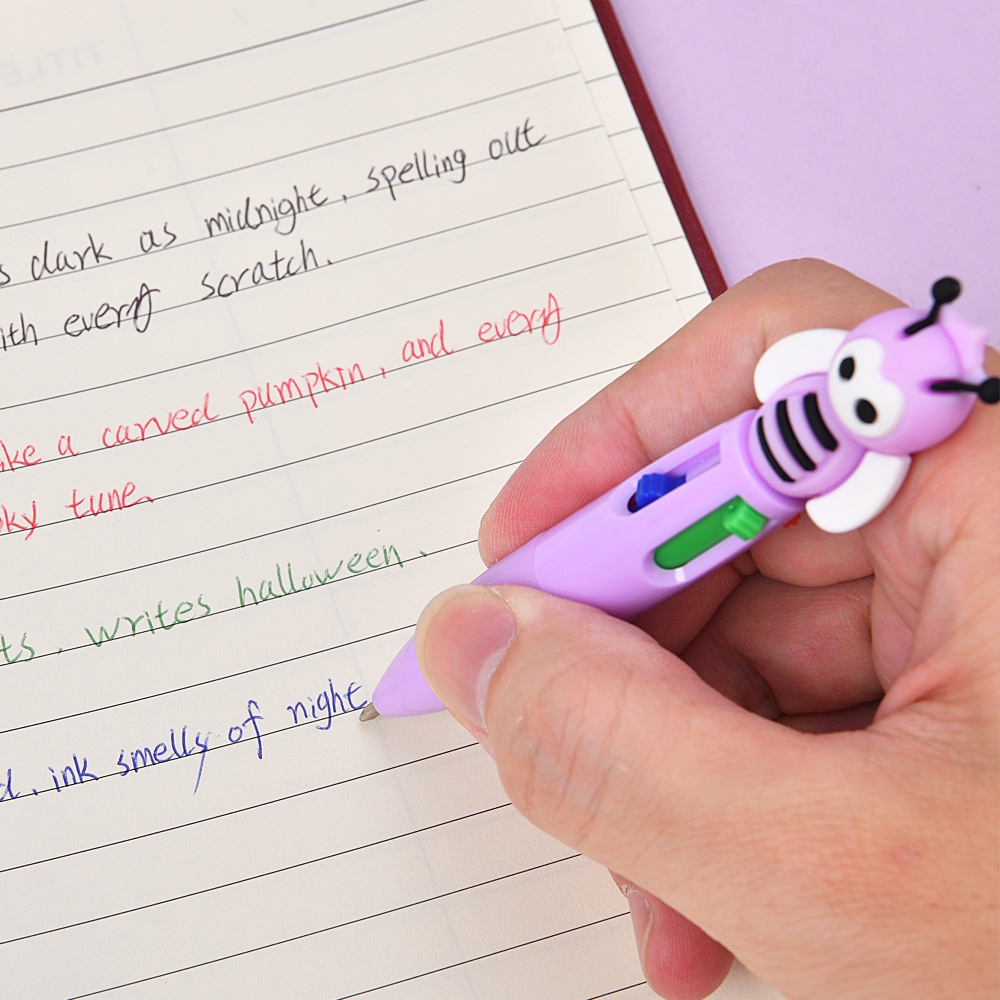 s dark as midnight, spelling out
ith every scratch.
ike a carved pumpkin, and every
ky tune.
ts, writes halloween.
d, ink smells of night